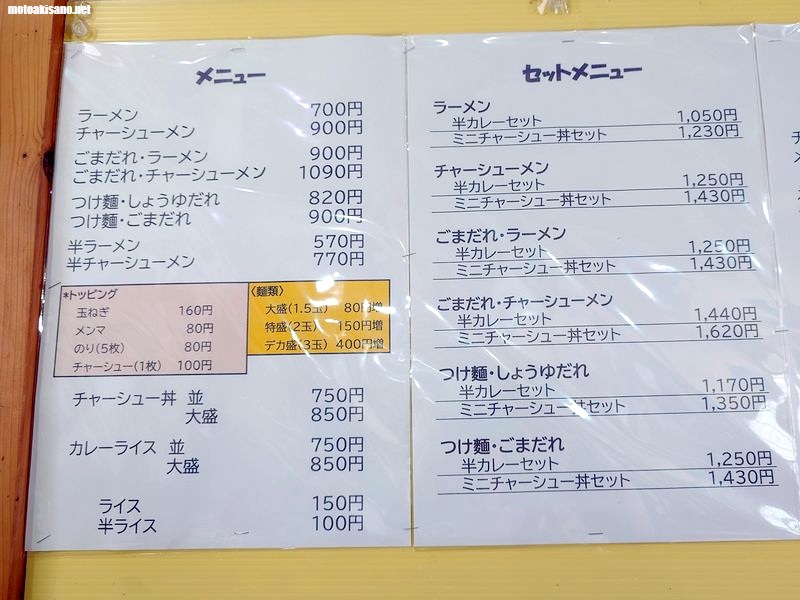 motoakisano.net
メニュー
ラーメン 700円
チャーシューメン 900円
ごまだれ・ラーメン 900円
ごまだれ・チャーシューメン 1090円
つけ麺・しょうゆだれ 820円
つけ麺・ごまだれ 900円
半ラーメン 570円
半チャーシューメン 770円
*トッピング
玉ねぎ 160円
メンマ 80円
のり(5枚) 80円
チャーシュー(1枚) 100円
〈麵類〉
大盛(1.5玉) 80円増
特盛(2玉) 150円増
デカ盛(3玉) 400円増
チャーシュー丼 並 750円
大盛 850円
カレーライス 並 750円
大盛 850円
ライス 150円
半ライス 100円
セットメニュー
ラーメン
半カレーセット 1,050円
ミニチャーシュー丼セット 1,230円
チャーシューメン
半カレーセット 1,250円
ミニチャーシュー丼セット 1,430円
ごまだれ・ラーメン
半カレーセット 1,250円
ミニチャーシュー丼セット 1,430円
ごまだれ・チャーシューメン
半カレーセット 1,440円
ミニチャーシュー丼セット 1,620円
つけ麺・しょうゆだれ
半カレーセット 1,170円
ミニチャーシュー丼セット 1,350円
つけ麺・ごまだれ
半カレーセット 1,250円
ミニチャーシュー丼セット 1,430円